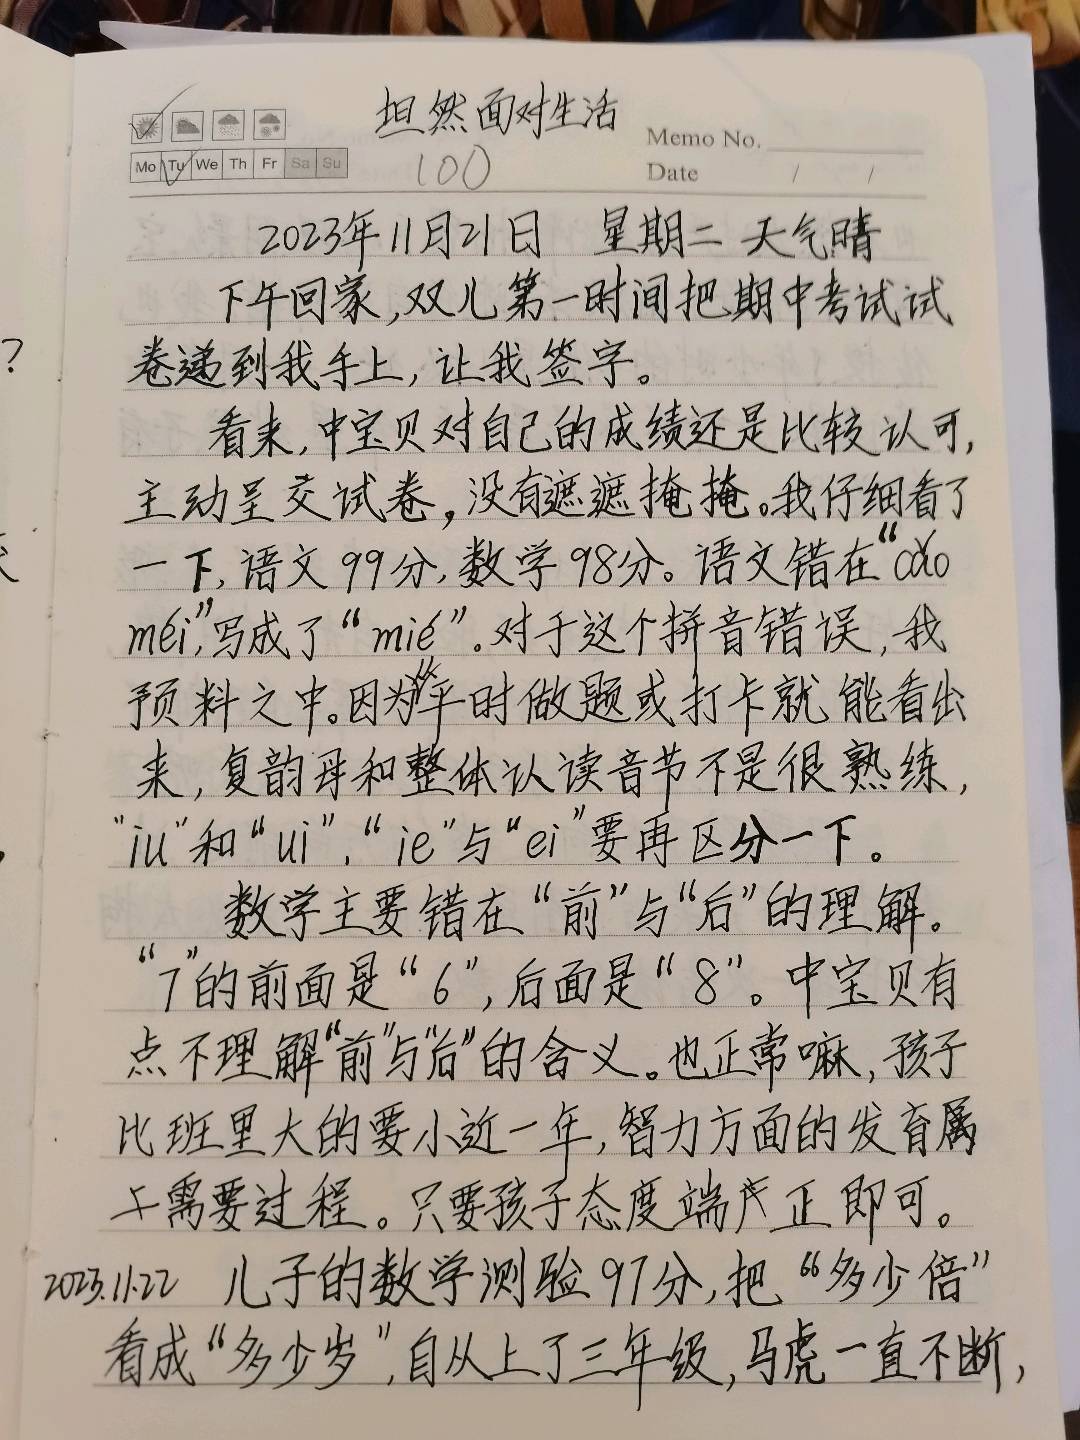 坦然面对生活
Memo No.
Mo Tu We Th Fr Sa Su
100
Date / /
2023年11月21日 星期二 天气晴
下午回家,双儿第一时间把期中考试试
卷递到我手上,让我签字。
看来,中宝贝对自己的成绩还是比较认可,
主动呈交试卷,没有遮遮掩掩。我仔细看了
一下,语文99分,数学98分。语文错在“cǎo
méi”,写成了“mié”。对于这个拼音错误,我
预料之中。因为平时做题或打卡就能看出
来,复韵母和整体认读音节不是很熟练,
“iu”和“ui”,“ie”与“ei”要再区分一下。
数学主要错在“前”与“后”的理解。
“7”的前面是“6”,后面是“8”。中宝贝有
点不理解“前”与“后”的含义。也正常嘛,孩子
比班里大的要小近一年,智力方面的发育属
于需要过程。只要孩子态度端正即可。
2023.11.22 儿子的数学测验97分,把“多少倍”
看成“多少岁”,自从上了三年级,马虎一直不断,
?